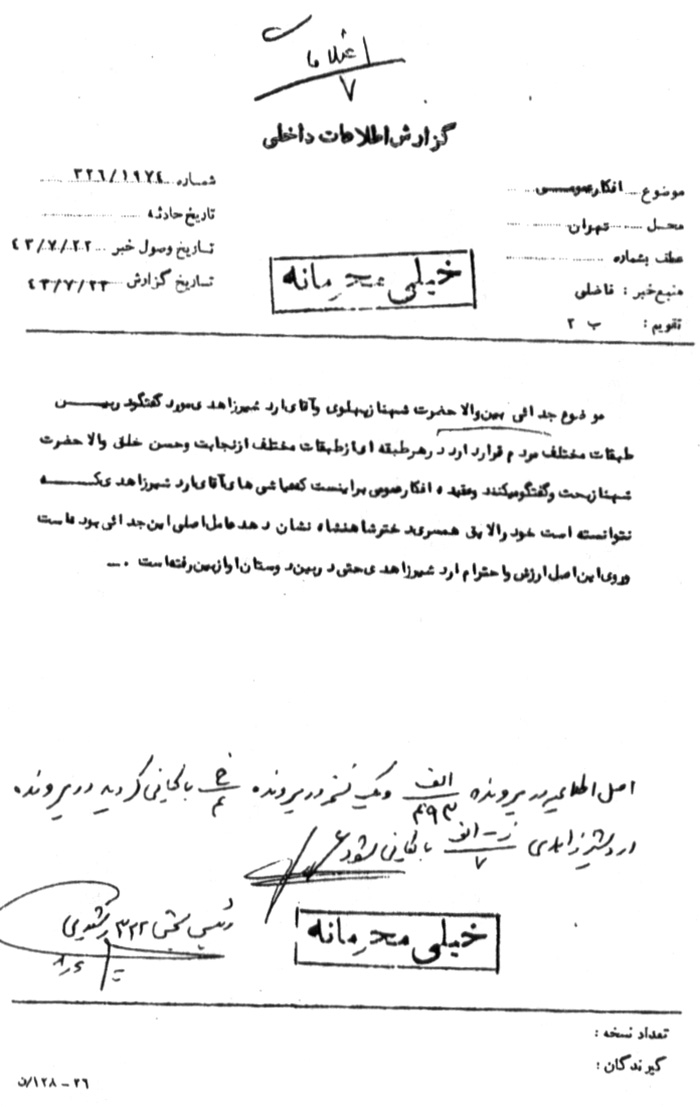 اغلاط
۷
گزارش اطلاعات داخلی
موضوع افکار عمومی
شماره ۳۲۶/۱۹۷۴
محل تهران
تاریخ حادثه
عطف بشماره
تاریخ وصول خبر ۴۳/۷/۲۲
منبع خبر : فاضلی
تاریخ گزارش ۴۳/۷/۲۳
تقویم : ب ۲
خیلی محرمانه
موضوع جدائی بین والا حضرت شهناز پهلوی و آقای اردشیر زاهدی مورد گفتگو در بین
طبقات مختلف مردم قرار دارد در هر طبقه ای از طبقات مختلف از نجابت و حسن خلق والا حضرت
شهناز بحث و گفتگو میکنند و عقیده افکار عمومی بر اینست که عیاشی های آقای اردشیر زاهدی که
نتوانسته است خود را لایق همسری دختر شاهنشاه نشان دهد عامل اصلی این جدائی بوده است
و روی این اصل ارزش و احترام اردشیر زاهدی حتی در بین دوستان او از بین رفته است .
اصل اطلاعیه در پرونده الف/۴۹۳ و یک نسخه در پرونده خ/۴ بایگانی گردید در پرونده
اردشیر زاهدی ز - الف/۷ بایگانی شود
رئیس بخش ۳۲۲
خیلی محرمانه
تعداد نسخه :
گیرندگان :
۲۶ - ۱۲۸/ن